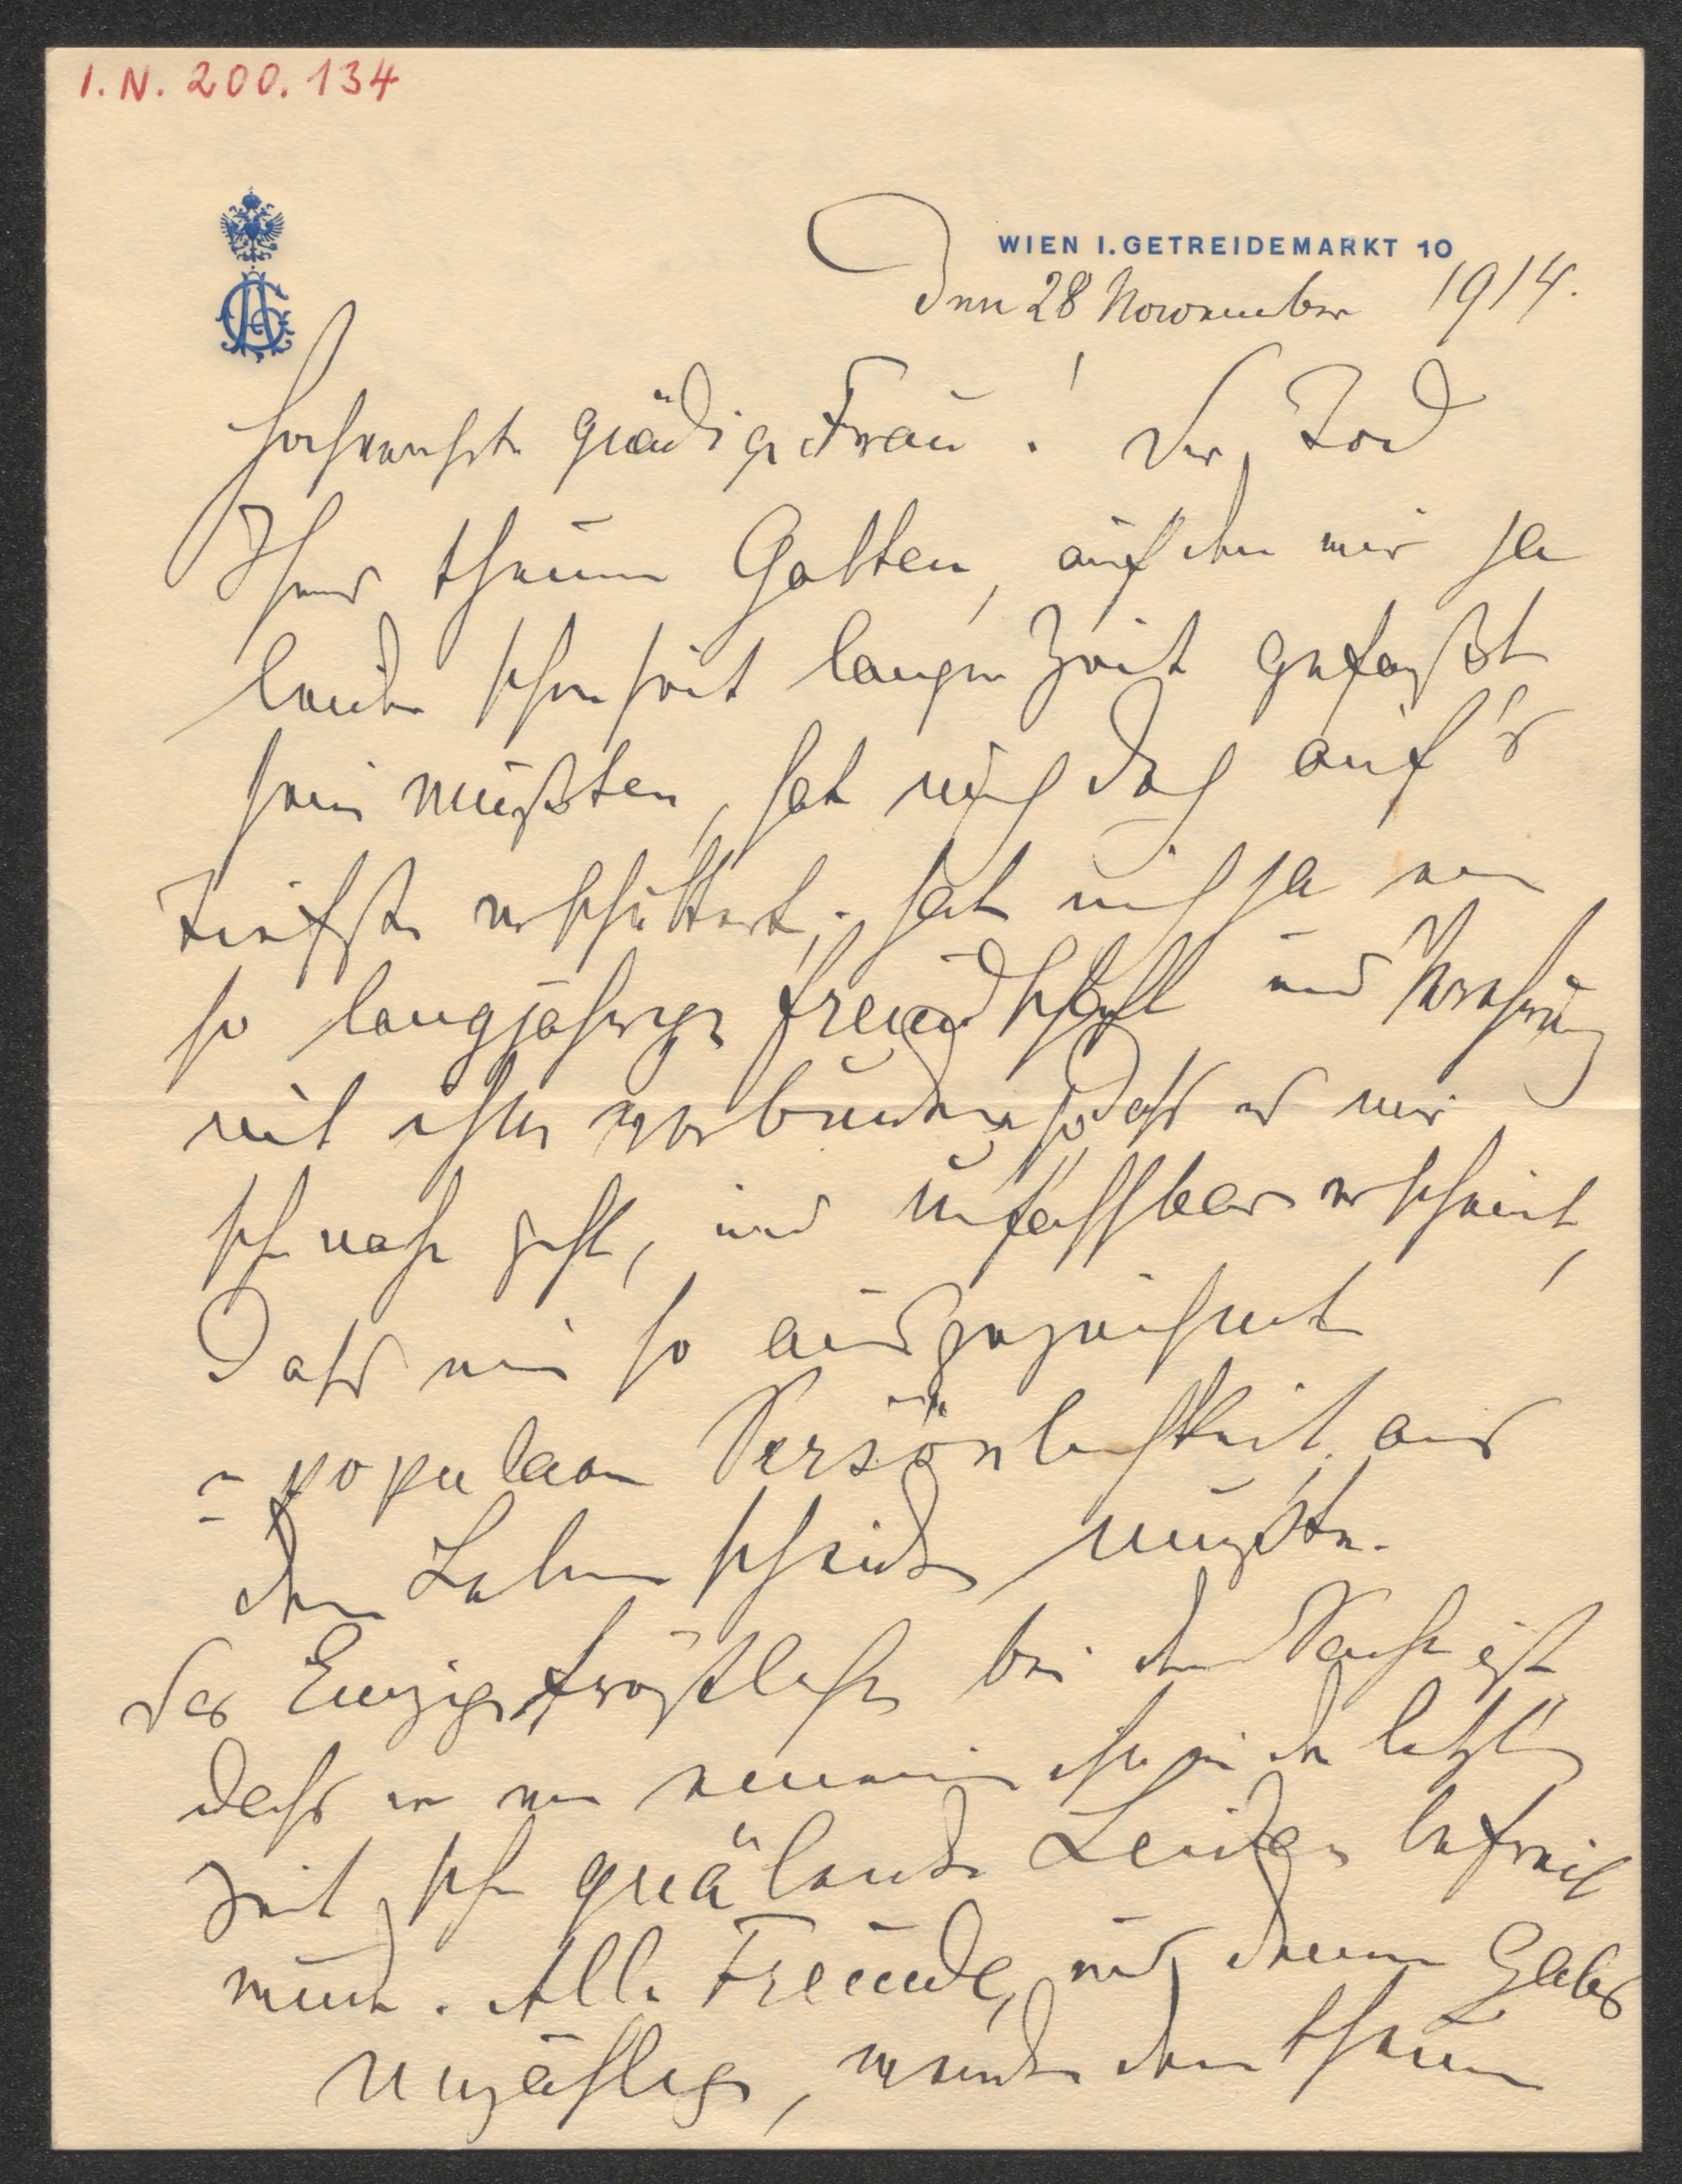 I.N. 200.134
WIEN I. GETREIDEMARKT 10
Den 28 November 1914.
Hochverehrte gnädige Frau! Der Tod
Ihres theuren Gatten, auf den wir ja
leider schon seit langer Zeit gefaßt
sein mußten, hat mich doch auf's
tiefste erschüttert; hat mich ja eine
so langjährige Freundschaft und Verehrung
mit ihm verbunden, so daß es mir
sehr nahe geht, und unfaßbar erscheint,
daß eine so ausgezeichnete
u populäre Persönlichkeit aus
dem Leben scheiden mußte.
Das Einzige tröstliche bei der Sache ist,
daß er von seinem ihn in der letzten
Zeit sehr quälenden Leiden befreit
wurde. Alle Freunde, und deren gab es
unzählige, werden dem theuren